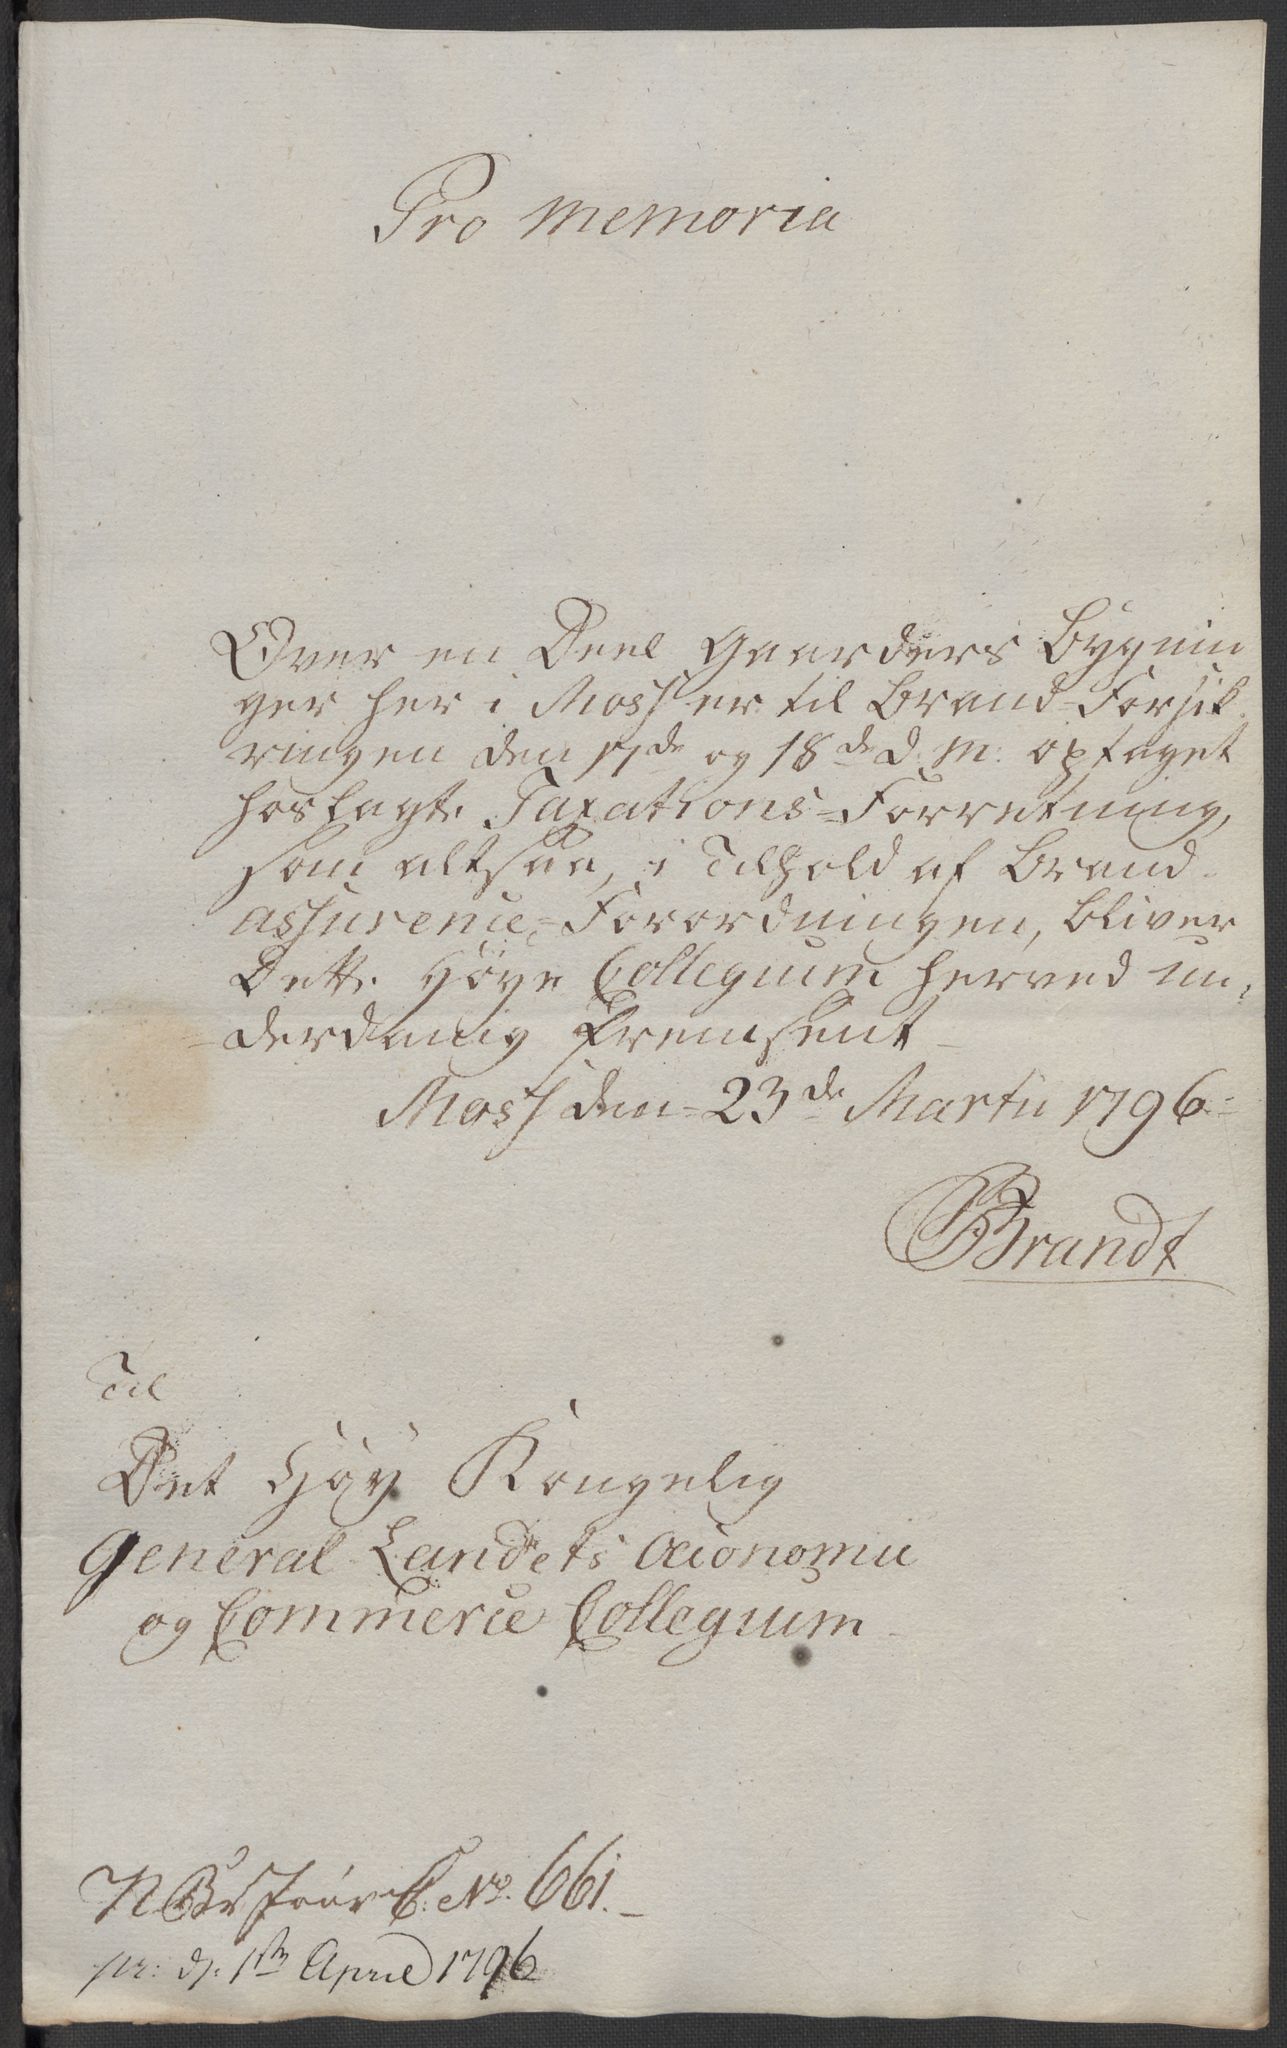 Pro Memoria
Over en Deel Gaarders Bygnin
ger her i Moss er til Brand-Forsik
ringen den 17de og 18de d. M: optaget
hoslagte Taxations-Forretning,
som altsaa, i Tilhold af Brand
assurence-Forordningen, bliver
Dette Høye Collegium herved un,
derdanig fremsent
Moss den 23de Martii 1796
Brandt
Til
Det Høy Kongelig
General Landets Oeconomie
og Commerce Collegium
No. 661.
pr: d: 1ste April 1796